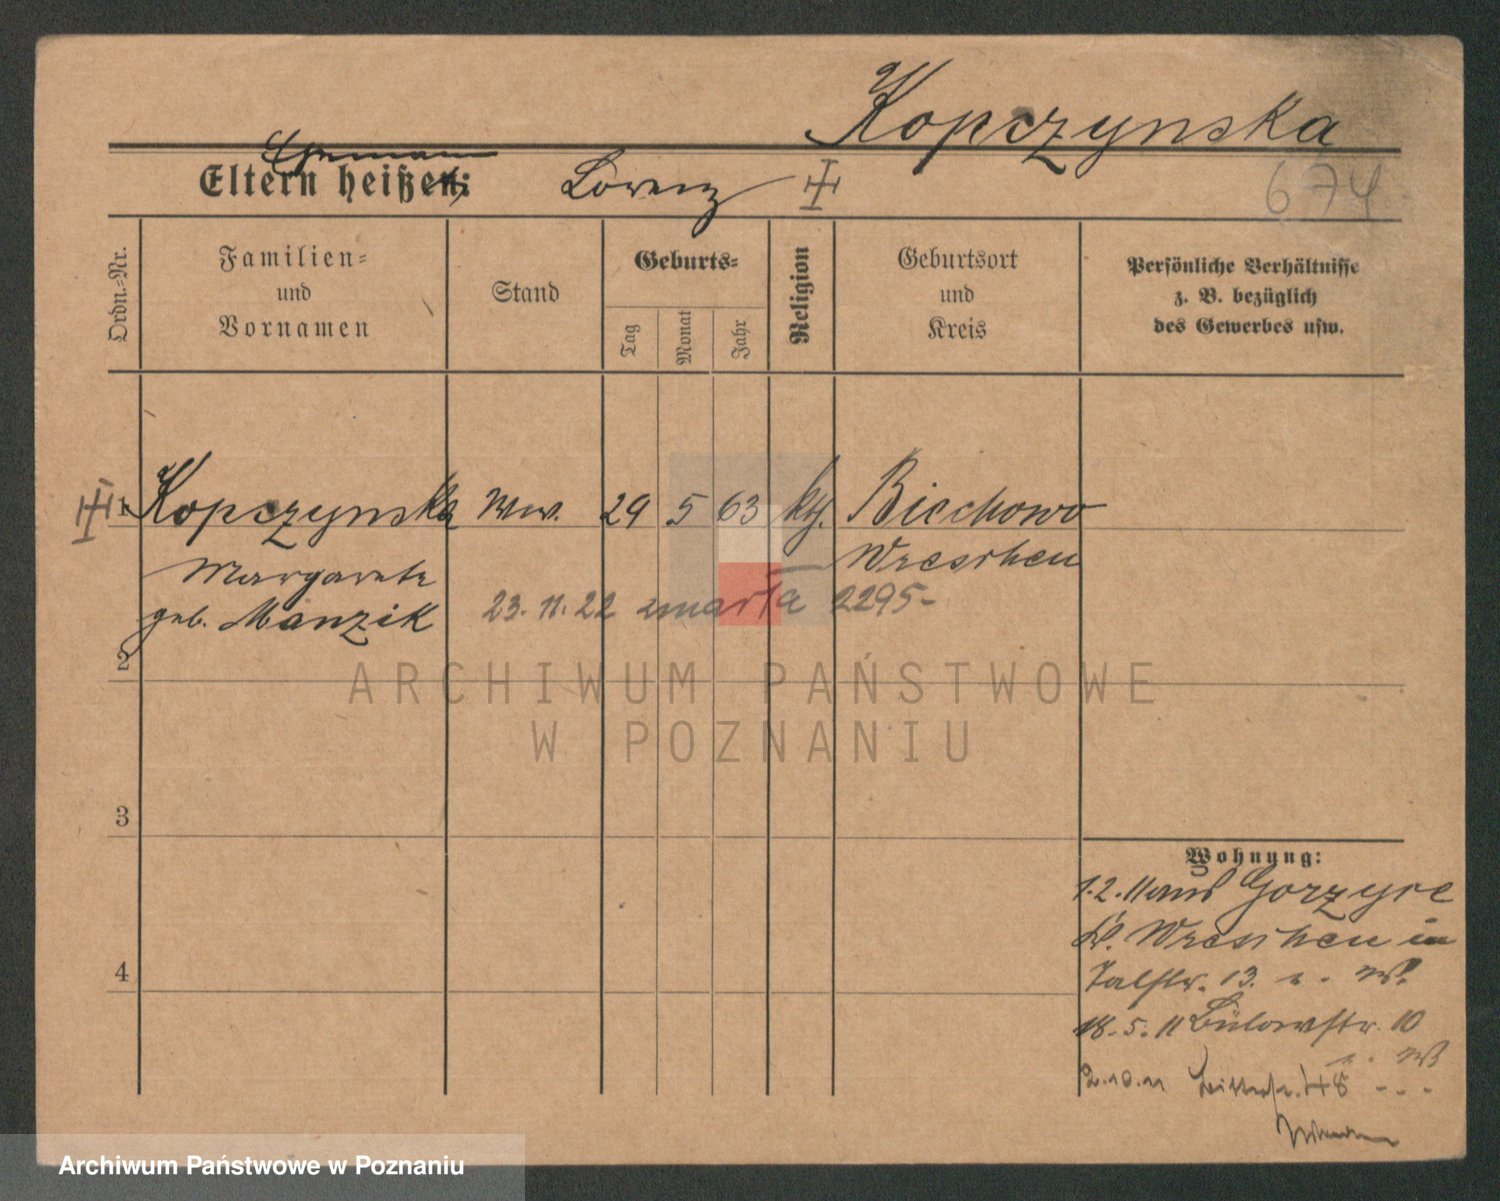 Kopczynska
Ehemann
Eltern heißen: Lorenz
674
Ordn.-Nr.
Familien-
und
Vornamen
Stand
Geburts-
Tag
Monat
Jahr
Religion
Geburtsort
und
Kreis
Persönliche Verhältnisse
z. B. bezüglich
des Gewerbes usw.
1 Kopczynska Ww. 29 5 63 kth. Biechowo
Wreschen
Margarete
geb. Manzik 23. 11. 22 zmarła 2295-
2
ARCHIWUM PAŃSTWOWE
W POZNANIU
3
Wohnung:
1.2.11 aus Gorzyce
Kr. Wreschen in
Talstr. 13.
4
18. 5. 11 Bülowstr. 10
2.10.11
Archiwum Państwowe w Poznaniu